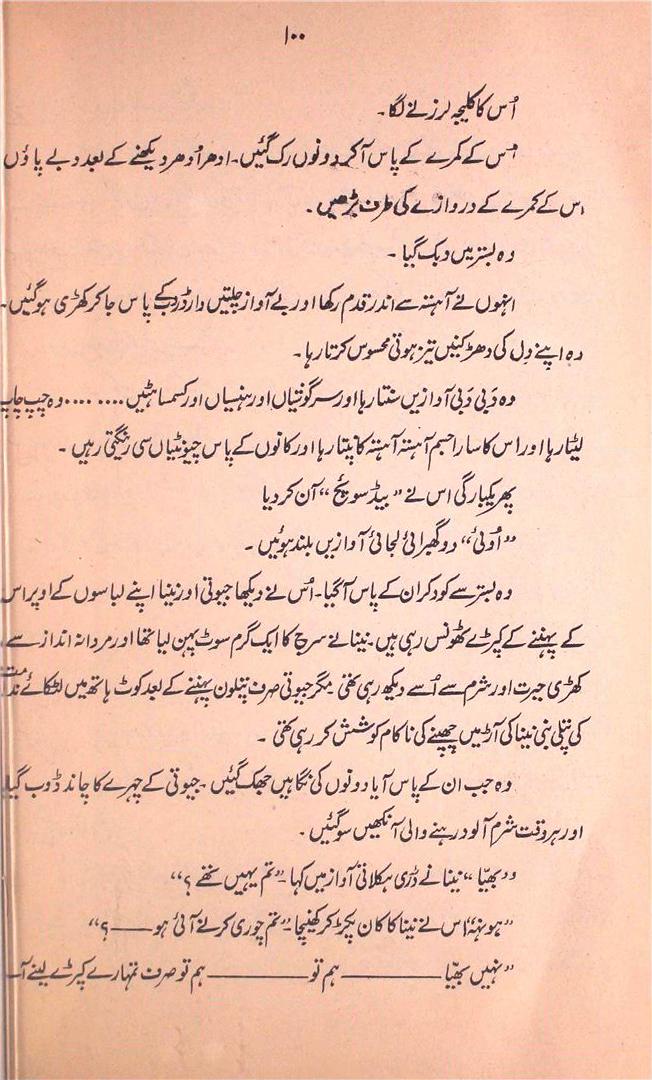 ۱۰۰
اُس کا کلیجہ لرزنے لگا۔
اس کے کمرے کے پاس آکر دونوں رک گئیں۔ ادھر اُدھر دیکھنے کے بعد دبے پاؤں
اس کے کمرے کے دروازے کی طرف بڑھیں۔
وہ بستر میں دبک گیا۔
انہوں نے آہستہ سے اندر قدم رکھا اور بے آواز چلتیں وارڈروب کے پاس جا کر کھڑی ہو گئیں۔
وہ اپنے دِل کی دھڑکنیں تیز ہوتی محسوس کرتا رہا۔
وہ دَبی دَبی آوازیں سنتا رہا اور سرگوشیاں اور ہنسیاں اور کسمساہٹیں........ وہ چپ چاپ
لیٹا رہا اور اس کا سارا جسم آہستہ آہستہ کانپتا رہا اور کانوں کے پاس چیونٹیاں سی رینگتی رہیں۔
پھر یکبارگی اس نے ”بیڈ سویچ“ آن کر دیا
”اُوئی“ دو گھبرائی لجائی آوازیں بلند ہوئیں۔
وہ بستر سے کود کر ان کے پاس آگیا۔ اُس نے دیکھا جیوتی اور نینا اپنے لباسوں کے اوپر اس
کے پہننے کے کپڑے ٹھونس رہی ہیں۔ نینا نے سرج کا ایک گرم سوٹ پہن لیا تھا اور مردانہ انداز سے
کھڑی حیرت اور شرم سے اُسے دیکھ رہی تھی مگر جیوتی صرف پتلون پہننے کے بعد کوٹ ہاتھ میں لٹکائے ندامت
کی پتلی بنی نینا کی آڑ میں چھپنے کی ناکام کوشش کر رہی تھی۔
وہ جب ان کے پاس آیا دونوں کی نگاہیں جھک گئیں۔ جیوتی کے چہرے کا چاند ڈوب گیا
اور ہر وقت شرم آلود رہنے والی آنکھیں سو گئیں۔
”بھیّا“ نینا نے ڈری ہکلاتی آواز میں کہا۔ ”تم یہیں تھے؟“
”ہونہہ“ اس نے نینا کا کان پکڑ کر کھینچا۔ ”تم چوری کرنے آئی ہو——؟“
”نہیں بھیّا———— ہم تو———— ہم تو صرف تمہارے کپڑے لینے